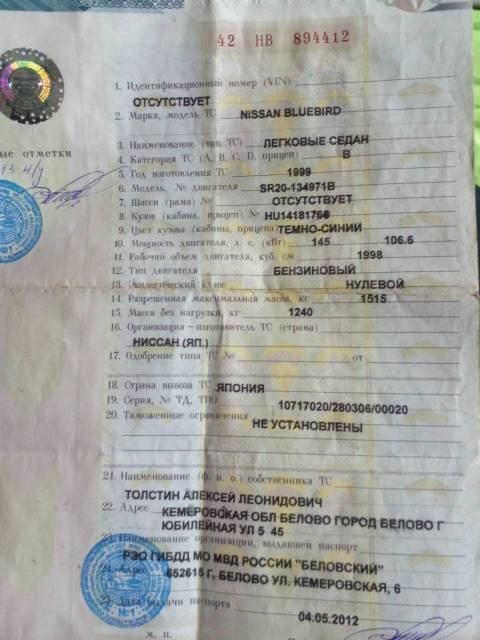 42 НВ 894412
1. Идентификационный номер (VIN)
ОТСУТСТВУЕТ
2. Марка, модель ТС NISSAN BLUEBIRD
3. Наименование (тип ТС) ЛЕГКОВЫЕ СЕДАН
4. Категория ТС (А, В, С, D, прицеп) В
5. Год изготовления ТС 1999
6. Модель, № двигателя SR20-134971B
7. Шасси (рама) № ОТСУТСТВУЕТ
8. Кузов (кабина, прицеп) № HU14181766
9. Цвет кузова (кабины, прицепа) ТЕМНО-СИНИЙ
10. Мощность двигателя, л. с. (кВт) 145 106.6
11. Рабочий объем двигателя, куб. см 1998
12. Тип двигателя БЕНЗИНОВЫЙ
13. Экологический класс НУЛЕВОЙ
14. Разрешенная максимальная масса, кг 1515
15. Масса без нагрузки, кг 1240
16. Организация – изготовитель ТС (страна)
НИССАН (ЯП.)
17. Одобрение типа ТС № от
18. Страна вывоза ТС ЯПОНИЯ
19. Серия, № ТД, ТПО 10717020/280306/00020
20. Таможенные ограничения НЕ УСТАНОВЛЕНЫ
21. Наименование (ф. и. о.) собственника ТС
ТОЛСТИН АЛЕКСЕЙ ЛЕОНИДОВИЧ
22. Адрес КЕМЕРОВСКАЯ ОБЛ БЕЛОВО ГОРОД БЕЛОВО Г
ЮБИЛЕЙНАЯ УЛ 5 45
23. Наименование организации, выдавшей паспорт
РЭО ГИБДД МО МВД РОССИИ "БЕЛОВСКИЙ"
24. Адрес 652615 Г. БЕЛОВО УЛ. КЕМЕРОВСКАЯ, 6
25. Дата выдачи паспорта
04.05.2012
М. П.
ые отметки